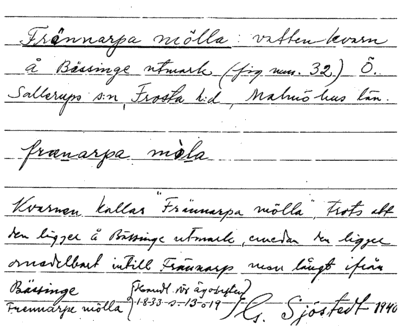 Frännarpa mölla: vattenkvarn
å Bässinge utmark (fig num. 32.) Ö.
Sallerups s:n, Frosta h:d, Malmöhus län.
frænarpa møla
Kvarnen kallas "Frännarpa mölla", trots att
den ligger å Bässinge utmark, emedan den ligger
omedelbart intill Frännarp men långt ifrån
Bässinge
Frennarpa mölla 1833 s. 13019 G. Sjöstedt 1940